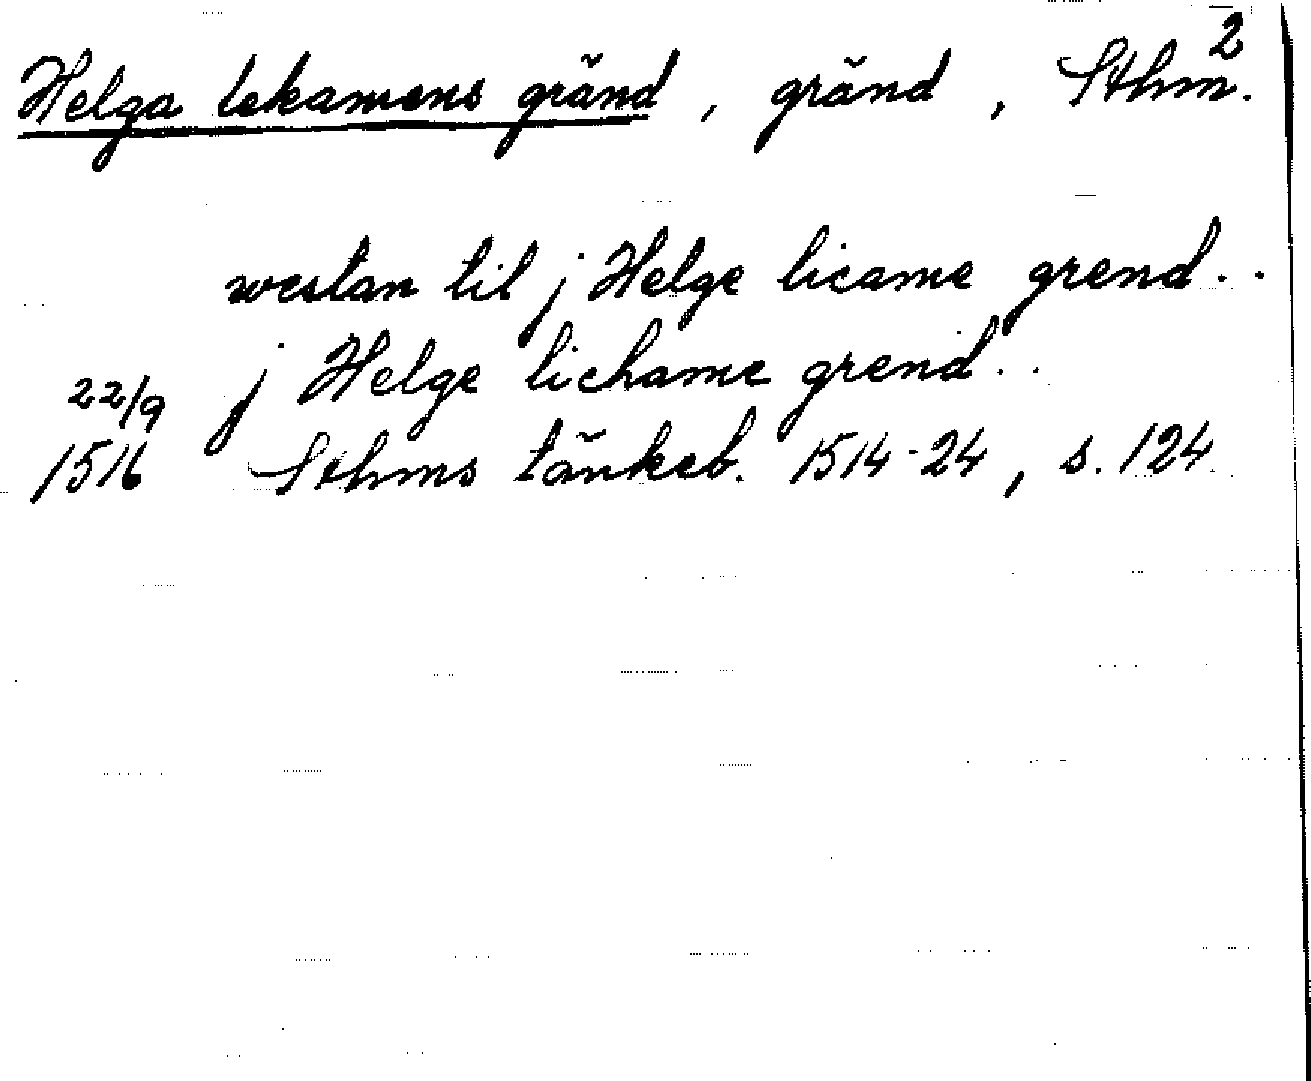 2
Helga lekamens gränd, gränd, Sthm.
westan til j Helge licame grend..
j Helge lichame grend..
22/9
1516 Sthms tänkeb. 1514-24, s. 124